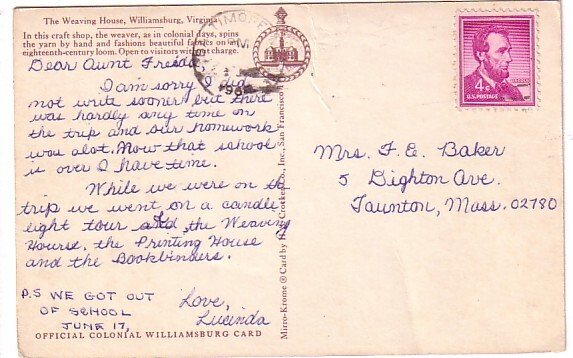 The Weaving House, Williamsburg, Virginia
In this craft shop, the weaver, as in colonial days, spins
the yarn by hand and fashions beautiful fabrics on an
eighteenth-century loom. Open to visitors without charge.
Dear Aunt Freda,
I am sorry I did
not write sooner but there
was hardly any time on
the trip and our homework
was alot. Now that school
is over I have time.
While we were on the
trip we went on a candle
light tour and the Weaving
Hourse, the Printing House
and the Bookbinders.
P.S WE GOT OUT
OF SCHOOL
JUNE 17,
Love,
Lucinda
OFFICIAL COLONIAL WILLIAMSBURG CARD
Mirro-Krome ® Card by H. S. Crocker Co., Inc., San Francisco
TIMORE
PM
196
4¢
LINCOLN
U.S. POSTAGE
Mrs. F. E. Baker
5 Dighton Ave.
Taunton, Mass. 02780